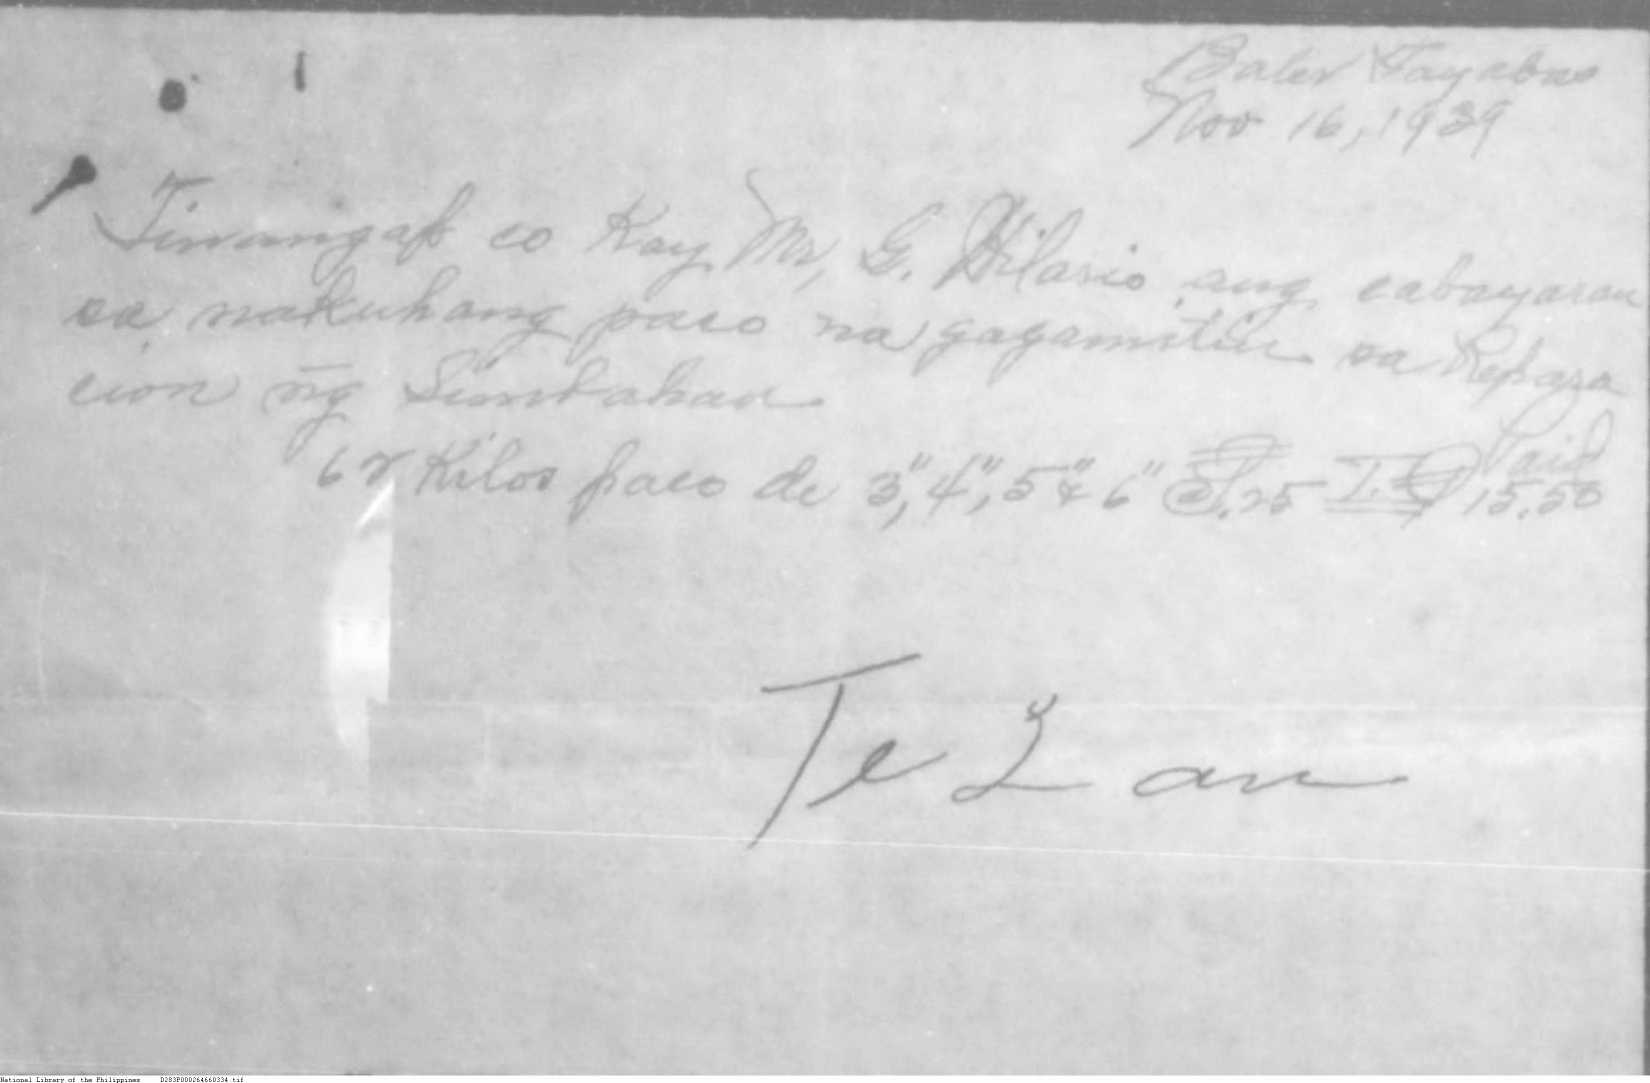 Baler Tayabas
Nov 16, 1939
Tinangap co Kay Mr, G. Hilario ang cabayaran
sa nakuhang paco na gagamitin sa Repara
cion ng̃ Simbahan
62 Kilos paco de 3", 4", 5" & 6" @ ₱.25 15.50
Paid
Te Lan
National Library of the Philippines D283P000264660334.tif